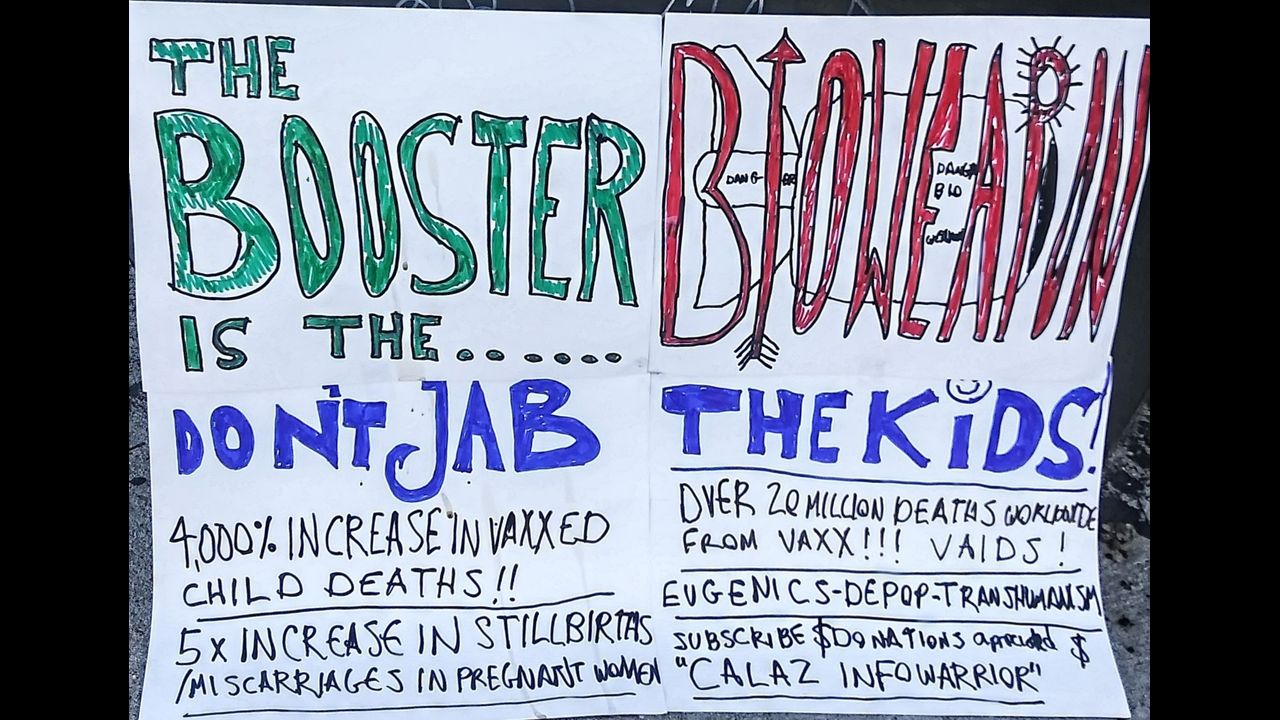 THE
BOOSTER
IS THE.......
BIOWEAPON
DANG-ER
DANGR
BIO
DON'T JAB
THE KiDS!
4,000% INCREASE IN VAXXED
CHILD DEATHS!!
5X INCREASE IN STILLBIRTHS
/MISCARRIAGES IN PREGNANT WOMEN
OVER 20 MILLION DEATHS WORLDWIDE
FROM VAXX!!! VAIDS!
EUGENICS-DEPOP-TRANSHUMANISM
SUBSCRIBE $DONATIONS $
"CALAZ INFOWARRIOR"